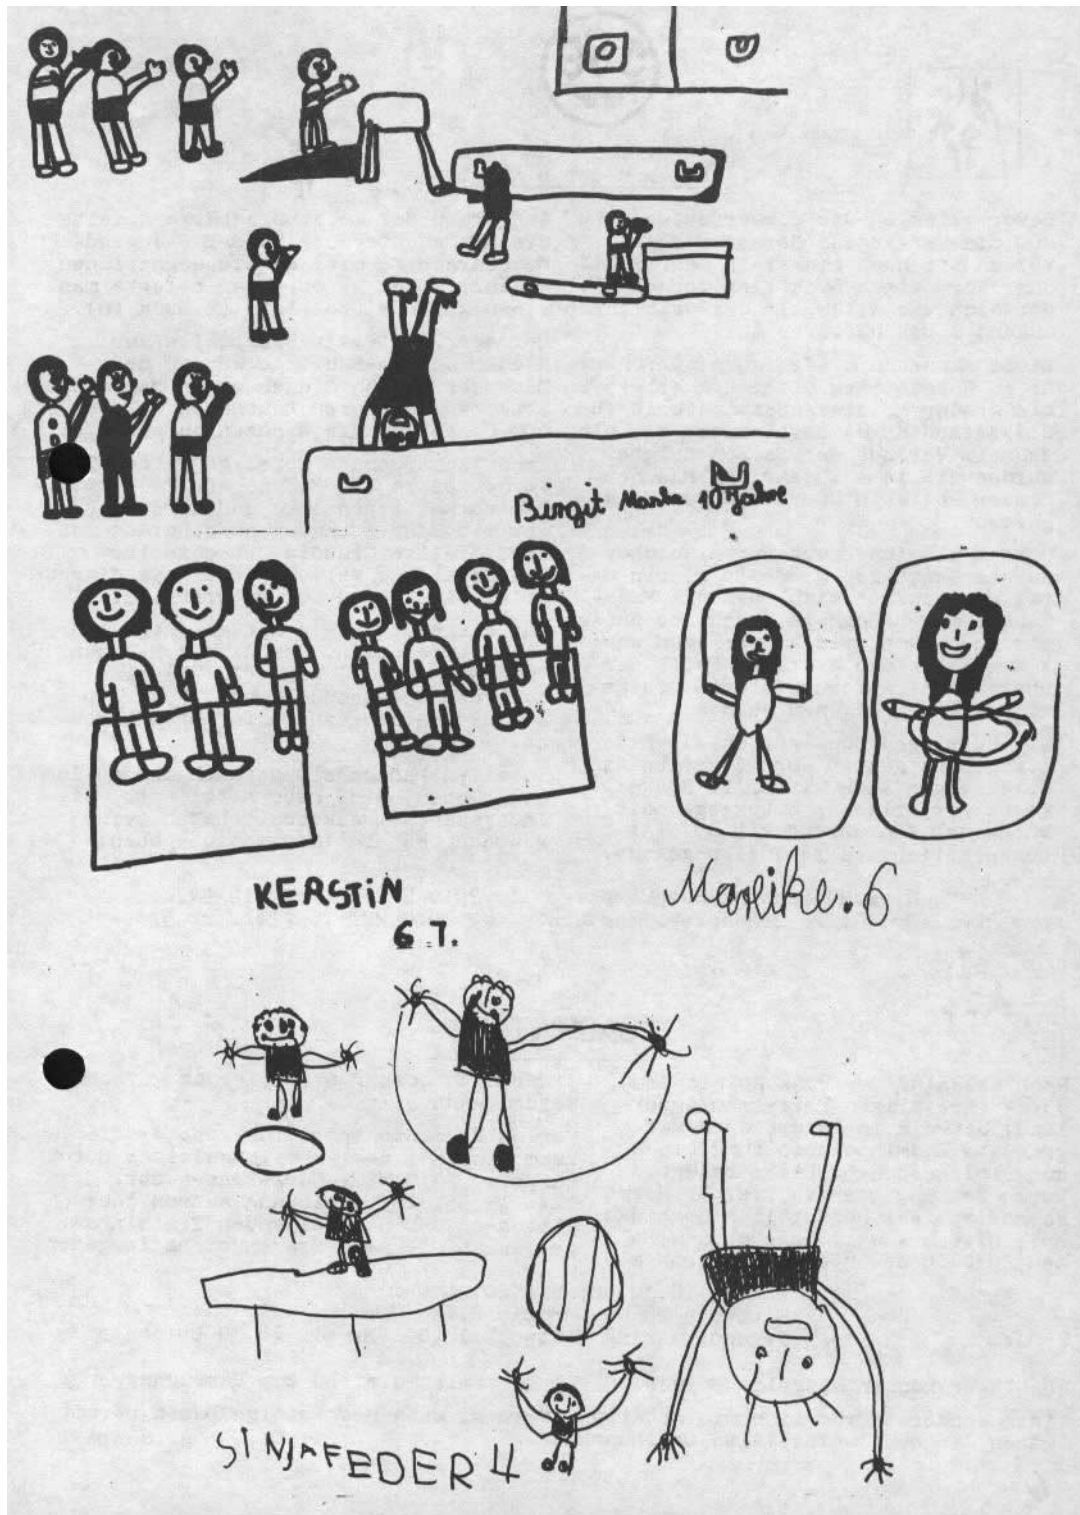 Birgit Manka 10 Jahre
KERSTiN
6 J.
Mareike. 6
SiNJAFEDER 4